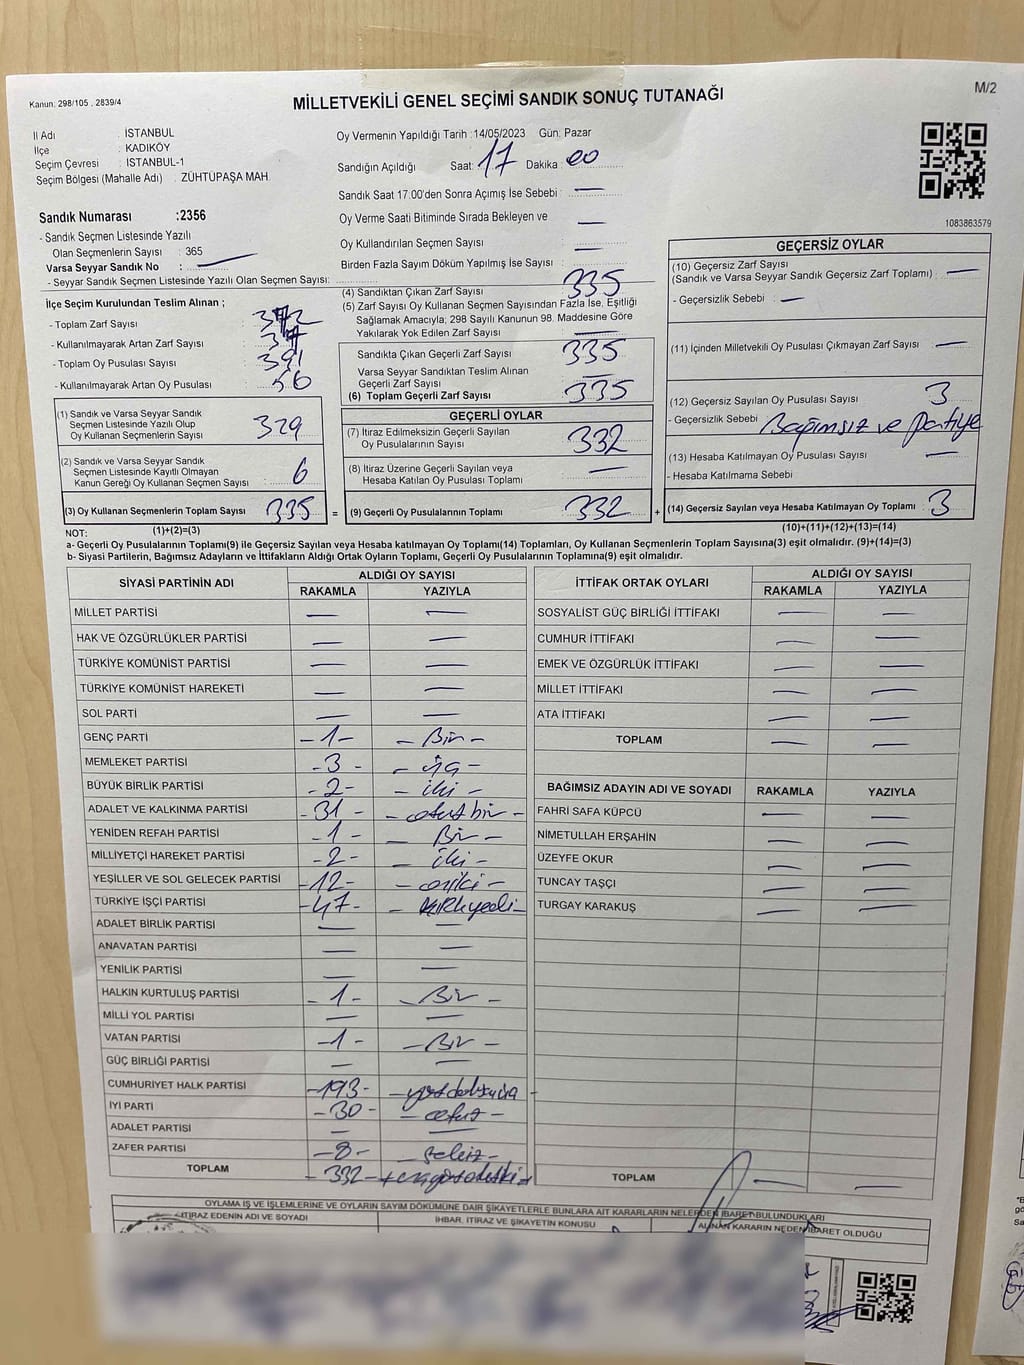 Kanun: 298/105 , 2839/4
MİLLETVEKİLİ GENEL SEÇİMİ SANDIK SONUÇ TUTANAĞI
M/2
İl Adı : İSTANBUL
İlçe : KADIKÖY
Seçim Çevresi : İSTANBUL-1
Seçim Bölgesi (Mahalle Adı) : ZÜHTÜPAŞA MAH.
Oy Vermenin Yapıldığı Tarih :14/05/2023 Gün: Pazar
Sandığın Açıldığı Saat: 17 Dakika 00
Sandık Saat 17.00'den Sonra Açımış İse Sebebi : —
Oy Verme Saati Bitiminde Sırada Bekleyen ve
Oy Kullandırılan Seçmen Sayısı : —
Birden Fazla Sayım Döküm Yapılmış İse Sayısı : —
1083863579
Sandık Numarası :2356
- Sandık Seçmen Listesinde Yazılı
Olan Seçmenlerin Sayısı : 365
Varsa Seyyar Sandık No : —
- Seyyar Sandık Seçmen Listesinde Yazılı Olan Seçmen Sayısı:
İlçe Seçim Kurulundan Teslim Alınan ;
- Toplam Zarf Sayısı :
- Kullanılmayarak Artan Zarf Sayısı :
- Toplam Oy Pusulası Sayısı : 391
- Kullanılmayarak Artan Oy Pusulası : 56
(1) Sandık ve Varsa Seyyar Sandık
Seçmen Listesinde Yazılı Olup
Oy Kullanan Seçmenlerin Sayısı : 329
(2) Sandık ve Varsa Seyyar Sandık
Seçmen Listesinde Kayıtlı Olmayan
Kanun Gereği Oy Kullanan Seçmen Sayısı : 6
(3) Oy Kullanan Seçmenlerin Toplam Sayısı : 335
(1)+(2)=(3)
(4) Sandıktan Çıkan Zarf Sayısı : 335
(5) Zarf Sayısı Oy Kullanan Seçmen Sayısından Fazla İse, Eşitliği
Sağlamak Amacıyla; 298 Sayılı Kanunun 98. Maddesine Göre
Yakılarak Yok Edilen Zarf Sayısı : —
Sandıkta Çıkan Geçerli Zarf Sayısı : 335
Varsa Seyyar Sandıktan Teslim Alınan
Geçerli Zarf Sayısı : —
(6) Toplam Geçerli Zarf Sayısı : 335
GEÇERLİ OYLAR
(7) İtiraz Edilmeksizin Geçerli Sayılan
Oy Pusulalarının Sayısı : 332
(8) İtiraz Üzerine Geçerli Sayılan veya
Hesaba Katılan Oy Pusulası Toplamı : —
= (9) Geçerli Oy Pusulalarının Toplamı : 332 +
GEÇERSİZ OYLAR
(10) Geçersiz Zarf Sayısı
(Sandık ve Varsa Seyyar Sandık Geçersiz Zarf Toplamı) : —
- Geçersizlik Sebebi : —
(11) İçinden Milletvekili Oy Pusulası Çıkmayan Zarf Sayısı : —
(12) Geçersiz Sayılan Oy Pusulası Sayısı : 3
- Geçersizlik Sebebi : Bağımsız ve Partiye
(13) Hesaba Katılmayan Oy Pusulası Sayısı : —
- Hesaba Katılmama Sebebi :
(14) Geçersiz Sayılan veya Hesaba Katılmayan Oy Toplamı : 3
(10)+(11)+(12)+(13)=(14)
NOT:
a- Geçerli Oy Pusulalarının Toplamı(9) ile Geçersiz Sayılan veya Hesaba Katılmayan Oy Toplamı(14) Toplamları, Oy Kullanan Seçmenlerin Toplam Sayısına(3) eşit olmalıdır. (9)+(14)=(3)
b- Siyasi Partilerin, Bağımsız Adayların ve İttifakların Aldığı Ortak Oyların Toplamı, Geçerli Oy Pusulalarının Toplamına(9) eşit olmalıdır.
SİYASİ PARTİNİN ADI ALDIĞI OY SAYISI
RAKAMLA YAZIYLA
MİLLET PARTİSİ — —
HAK VE ÖZGÜRLÜKLER PARTİSİ — —
TÜRKİYE KOMÜNİST PARTİSİ — —
TÜRKİYE KOMÜNİST HAREKETİ — —
SOL PARTİ — —
GENÇ PARTİ -1- - Bir -
MEMLEKET PARTİSİ -3- - üç -
BÜYÜK BİRLİK PARTİSİ -2- - iki -
ADALET VE KALKINMA PARTİSİ -31- - otuzbir -
YENİDEN REFAH PARTİSİ -1- - Bir -
MİLLİYETÇİ HAREKET PARTİSİ -2- - iki -
YEŞİLLER VE SOL GELECEK PARTİSİ -12- - oniki -
TÜRKİYE İŞÇİ PARTİSİ -47- - kırkyedi -
ADALET BİRLİK PARTİSİ — —
ANAVATAN PARTİSİ — —
YENİLİK PARTİSİ — —
HALKIN KURTULUŞ PARTİSİ -1- - Bir -
MİLLİ YOL PARTİSİ — —
VATAN PARTİSİ -1- - Bir -
GÜÇ BİRLİĞİ PARTİSİ — —
CUMHURİYET HALK PARTİSİ -193- - yüzdoksanüç -
İYİ PARTİ -30- - otuz -
ADALET PARTİSİ — —
ZAFER PARTİSİ -8- - sekiz -
TOPLAM - 332 -
İTTİFAK ORTAK OYLARI ALDIĞI OY SAYISI
RAKAMLA YAZIYLA
SOSYALİST GÜÇ BİRLİĞİ İTTİFAKI — —
CUMHUR İTTİFAKI — —
EMEK VE ÖZGÜRLÜK İTTİFAKI — —
MİLLET İTTİFAKI — —
ATA İTTİFAKI — —
TOPLAM — —
BAĞIMSIZ ADAYIN ADI VE SOYADI RAKAMLA YAZIYLA
FAHRİ SAFA KÜPCÜ — —
NİMETULLAH ERŞAHİN — —
ÜZEYFE OKUR — —
TUNCAY TAŞÇI — —
TURGAY KARAKUŞ — —
TOPLAM — —
OYLAMA İŞ VE İŞLEMLERİNE VE OYLARIN SAYIM DÖKÜMÜNE DAİR ŞİKAYETLERLE BUNLARA AİT KARARLARIN NELERDEN İBARET BULUNDUKLARI
İTİRAZ EDENİN ADI VE SOYADI
İHBAR, İTİRAZ VE ŞİKAYETİN KONUSU
ALINAN KARARIN NEDEN İBARET OLDUĞU